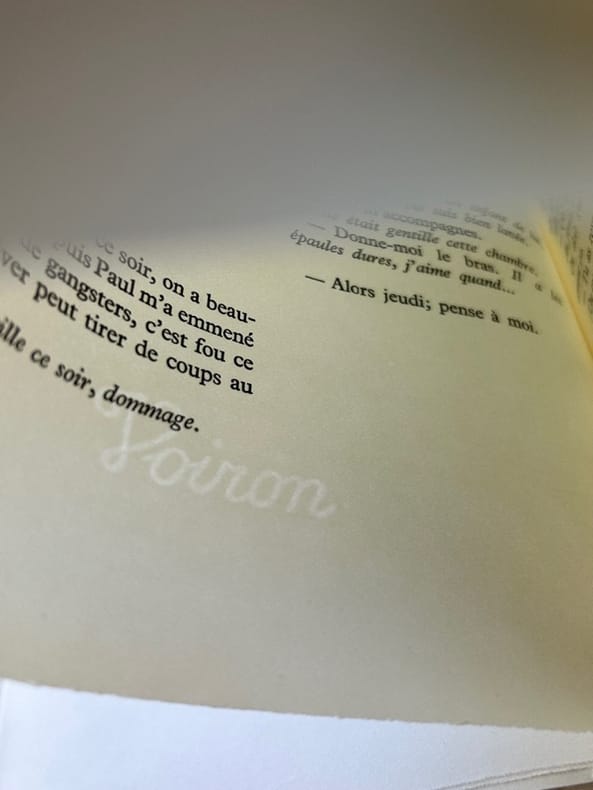 ce soir, on a beau-
uis Paul m'a emmené
de gangsters, c'est fou ce
ver peut tirer de coups au
ille ce soir, dommage.
Voiron
accompagnes.
était gentille cette chambre,
— Donne-moi le bras. Il a
épaules dures, j'aime quand...
— Alors jeudi; pense à moi.